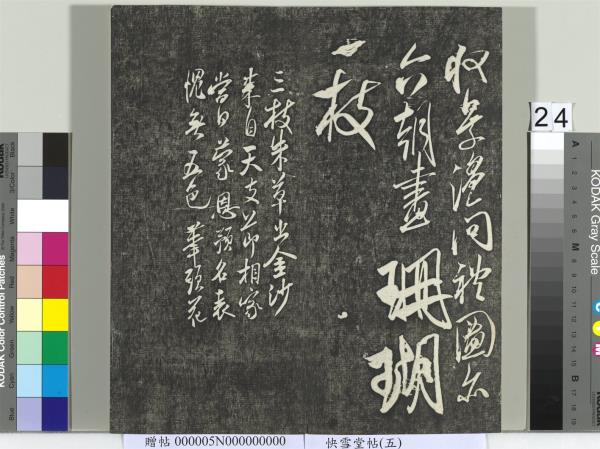 收景溫問禮圖亦
六朝畫珊瑚
一枝
三枝朱草出金沙
來自天支節相家
當日蒙恩預名表
愧無五色筆頭花
24
贈帖 000005N000000000 快雪堂帖(五)
KODAK Color Control Patches
Blue Cyan Green Yellow Red Magenta White 3/Color Black
KODAK Gray Scale
A 1 2 3 4 5 6 M 8 9 10 11 12 13 14 15 B 17 18 19
C Y M